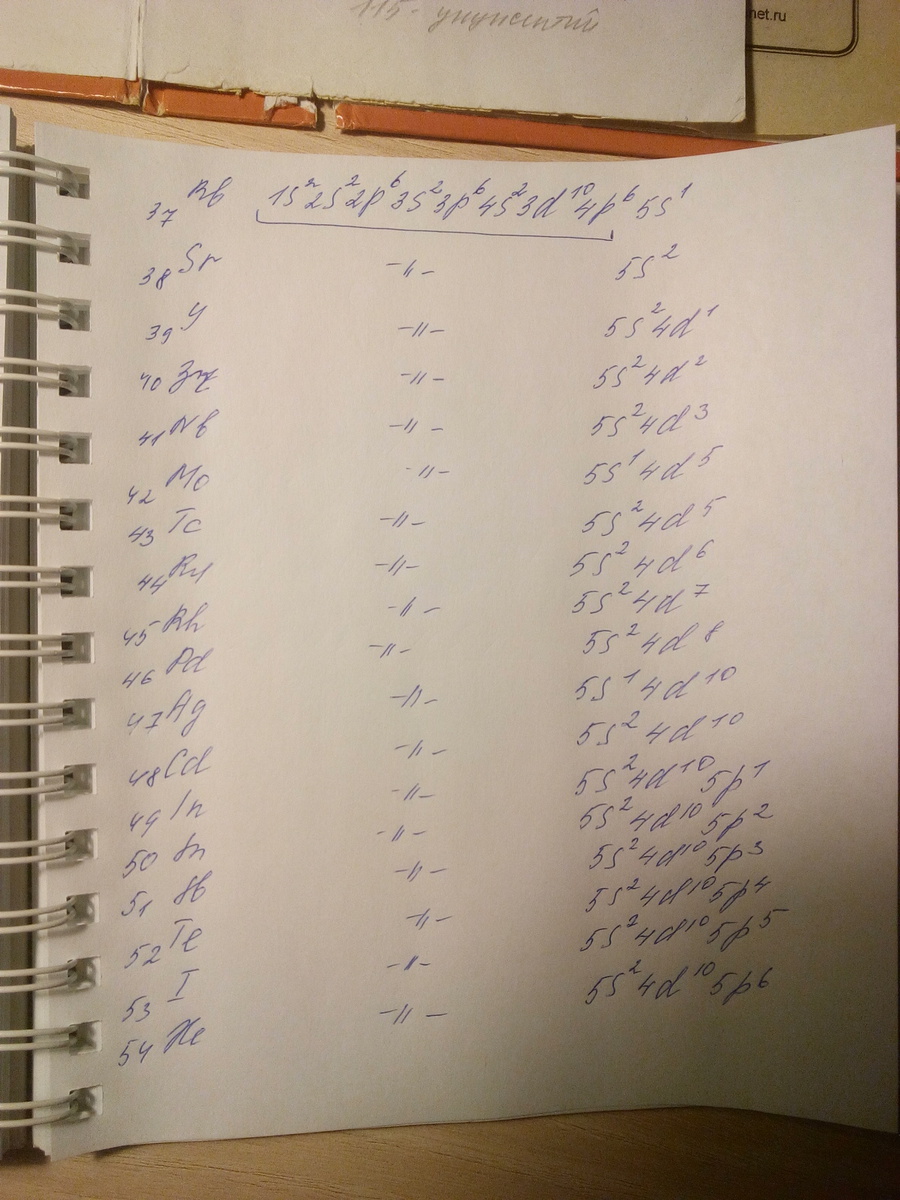 115 - унунпентий
net.ru
37 Rb 1s²2s²2p⁶3s²3p⁶4s²3d¹⁰4p⁶5s¹
38 Sr -〃- 5s²
39 Y -〃- 5s²4d¹
40 Zr -〃- 5s²4d²
41 Nb -〃- 5s²4d³
42 Mo -〃- 5s¹4d⁵
43 Tc -〃- 5s²4d⁵
44 Ru -〃- 5s²4d⁶
45 Rh -〃- 5s²4d⁷
46 Pd -〃- 5s²4d⁸
47 Ag -〃- 5s¹4d¹⁰
48 Cd -〃- 5s²4d¹⁰
49 In -〃- 5s²4d¹⁰5p¹
50 Sn -〃- 5s²4d¹⁰5p²
51 Sb -〃- 5s²4d¹⁰5p³
52 Te -〃- 5s²4d¹⁰5p⁴
53 I -〃- 5s²4d¹⁰5p⁵
54 Xe -〃- 5s²4d¹⁰5p⁶